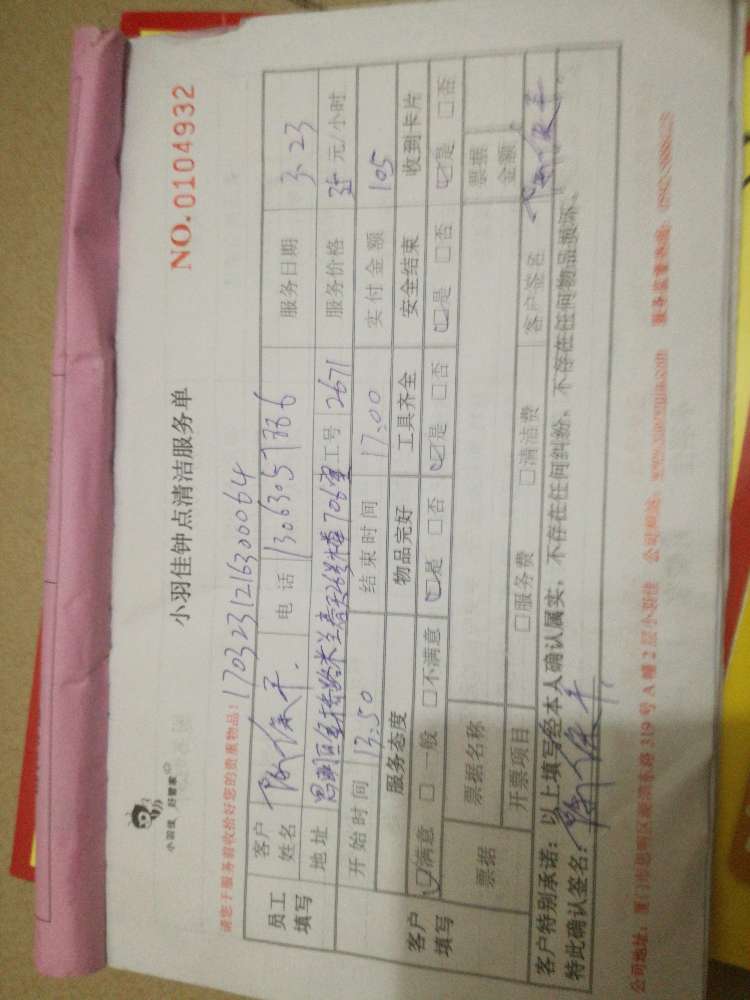 小羽佳 好管家
小羽佳钟点清洁服务单
NO.0104932
请您于服务前收拾好您的贵重物品: 1703231216300064
员工填写
客户姓名
电话
服务日期 3.23
地址
706室
工号 2671
服务价格 35 元/小时
开始时间 13:50
结束时间 17:00
实付金额 105
客户填写
服务态度
物品完好
工具齐全
安全结束
收到卡片
☑满意 □一般 □不满意
☑是 □否
☑是 □否
☑是 □否
☑是 □否
票据
票据名称
票据金额
开票项目
□服务费
□清洁费
客户签名
客户特别承诺: 以上填写经本人确认属实, 不存在任何纠纷, 不存在任何物品损坏,
特此确认签名:
公司地址: 厦门市思明区 319 号 A 幢 2 层小羽佳
公司网站:
服务监督热线: